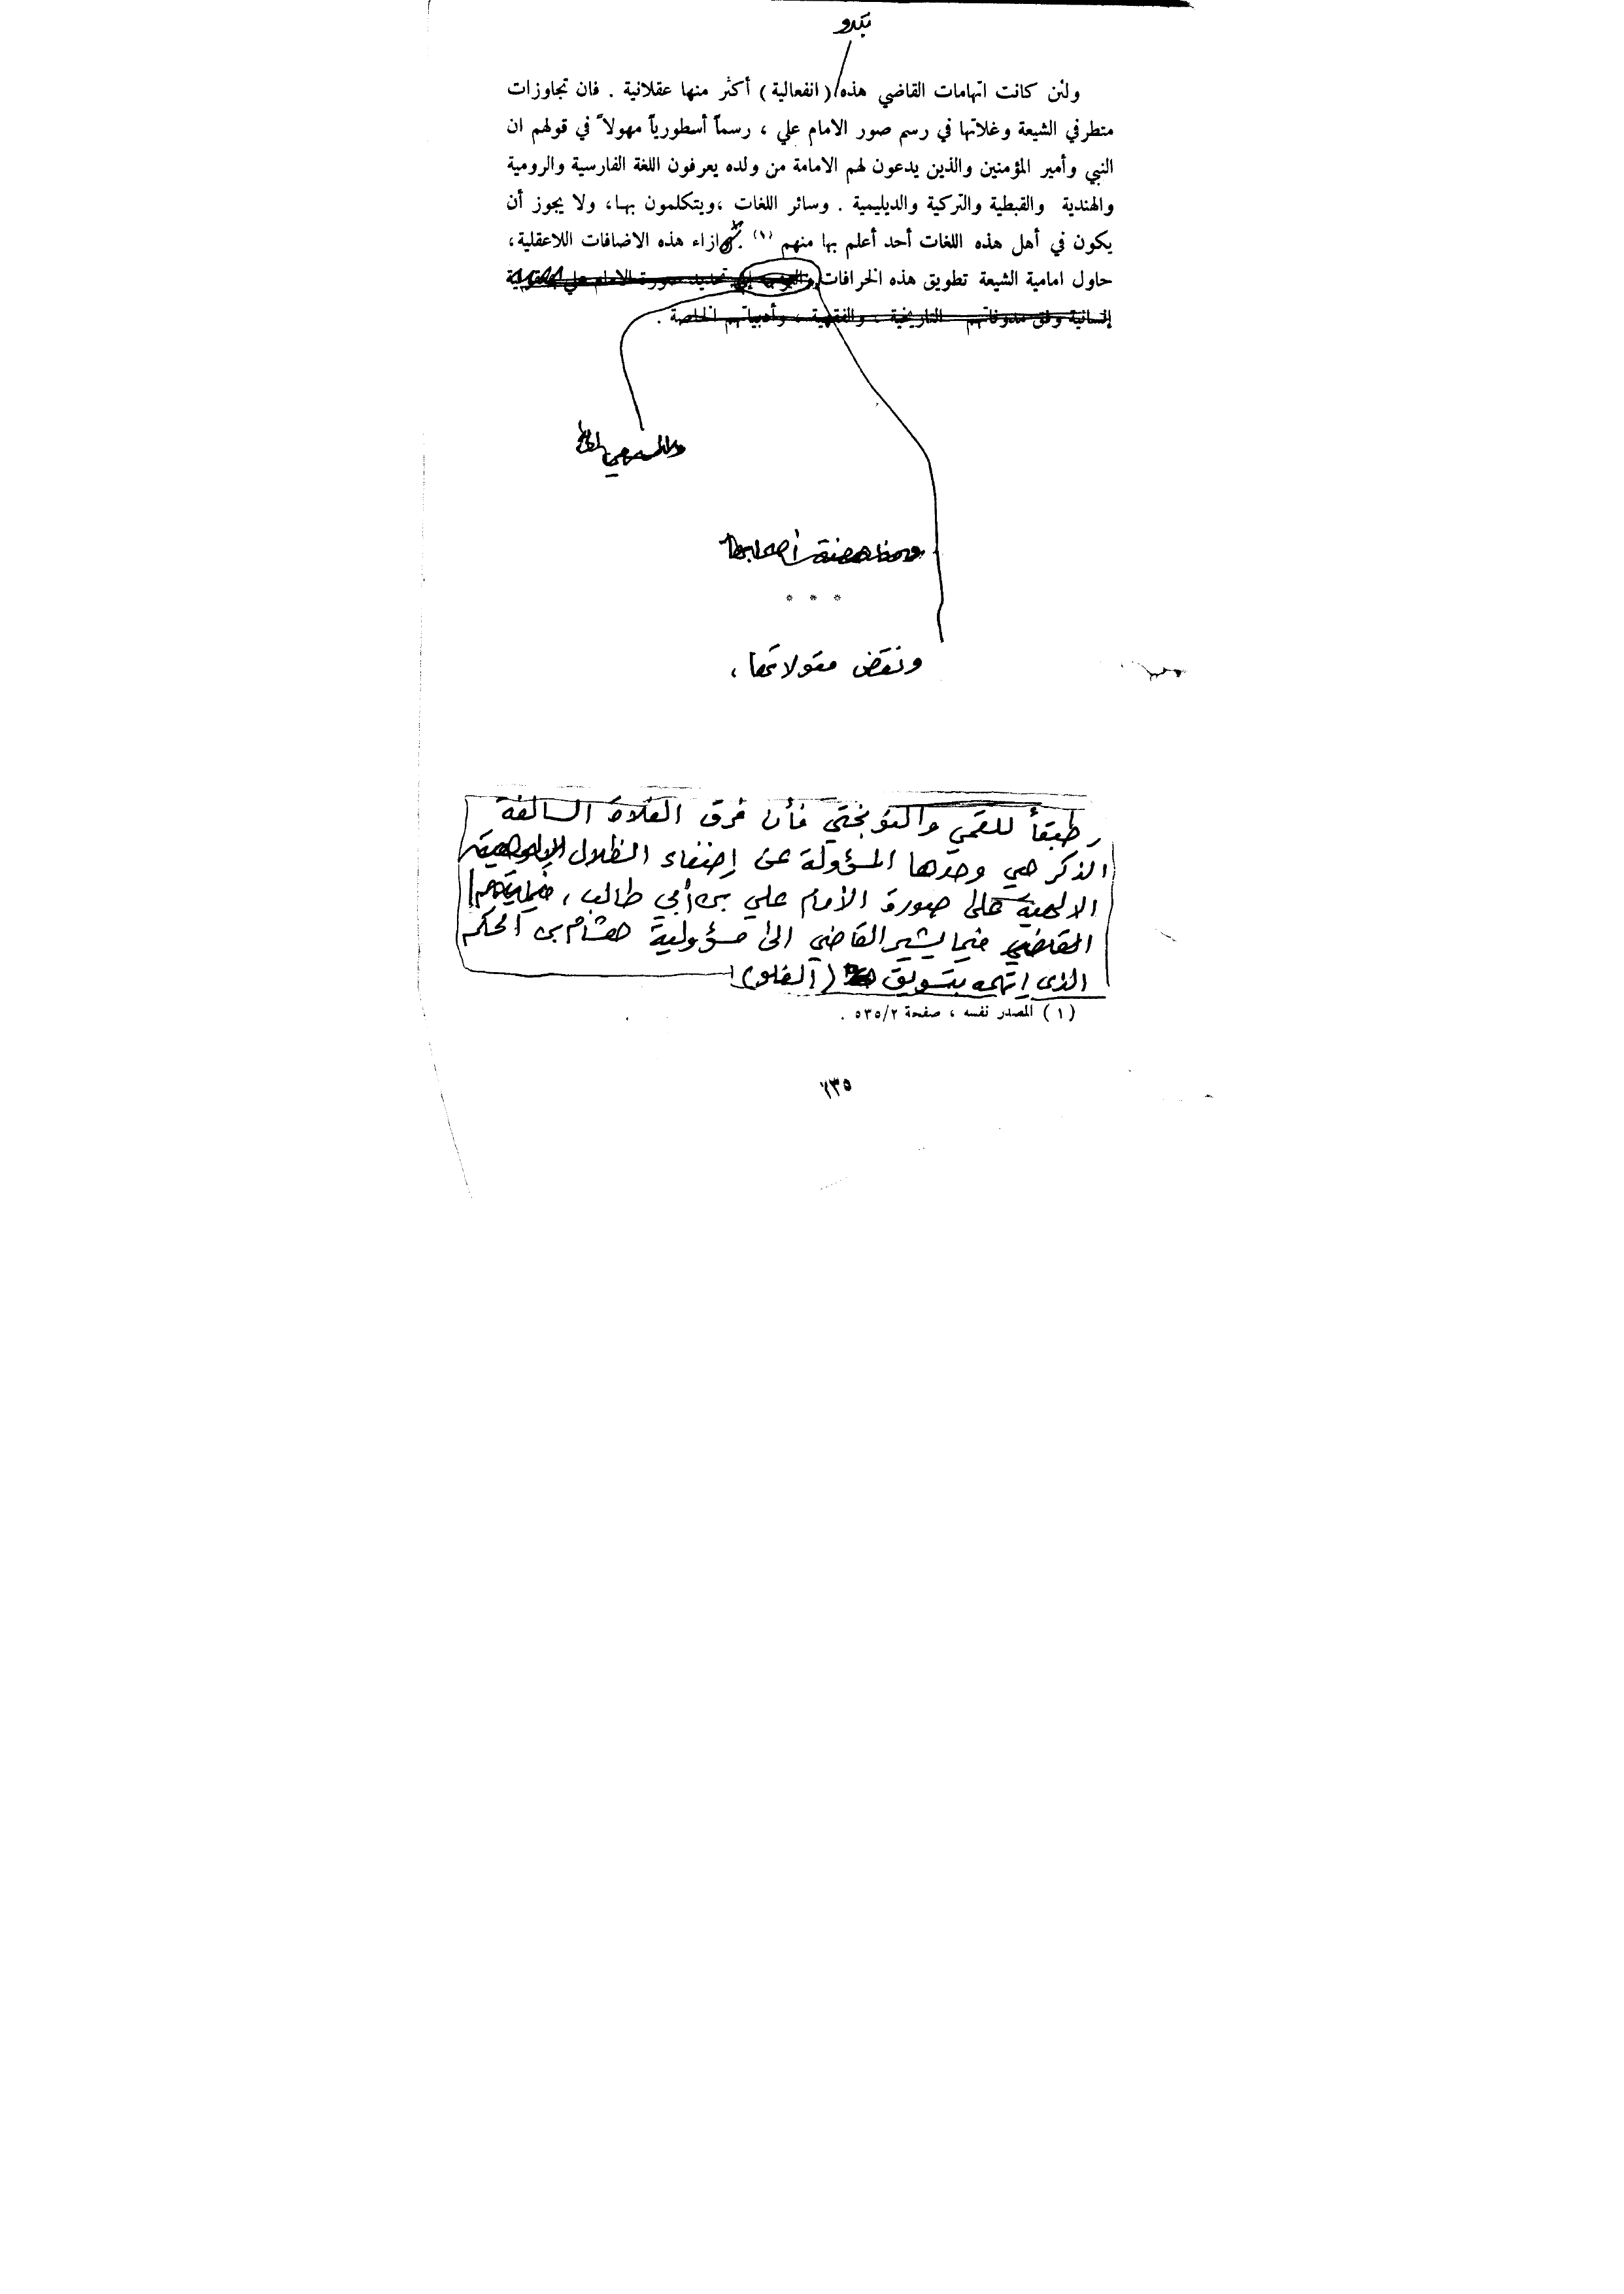 تبدو
ولئن كانت اتهامات القاضي هذه (انفعالية) أكثر منها عقلانية . فان تجاوزات
متطرفي الشيعة وغلاتها في رسم صور الامام علي ، رسماً أسطورياً مهولاً في قولهم ان
النبي وأمير المؤمنين والذين يدعون لهم الامامة من ولده يعرفون اللغة الفارسية والرومية
والهندية والقبطية والتركية والديليمية . وسائر اللغات ،ويتكلمون بها، ولا يجوز أن
يكون في أهل هذه اللغات أحد أعلم بها منهم (١) . ازاء هذه الاضافات اللاعقلية،
حاول امامية الشيعة تطويق هذه الخرافات تحديد صورة الامام علي
إنسانية وفق مدوناتهم التاريخية ، والفقهية ، وأدبياتهم الخاصة .
والسعي
ومناهضة أصحابها
* * *
ونقض مقولاتها ،
وطبقاً للقمي والنوبختي فأن فرق الغلاة السالفة
الذكر هي وحدها المسؤولة عن إضفاء الظلال
الالهية على صورة الأمام علي بن أبي طالب ، فيما يتهم
القاضي فيما يشير القاضي الى مسؤولية هشام بن الحكم
الذي اتهمه بتسويق (الغلو)
(١) المصدر نفسه ، صفحة ٥٣٥/٢ .
٦٣٥